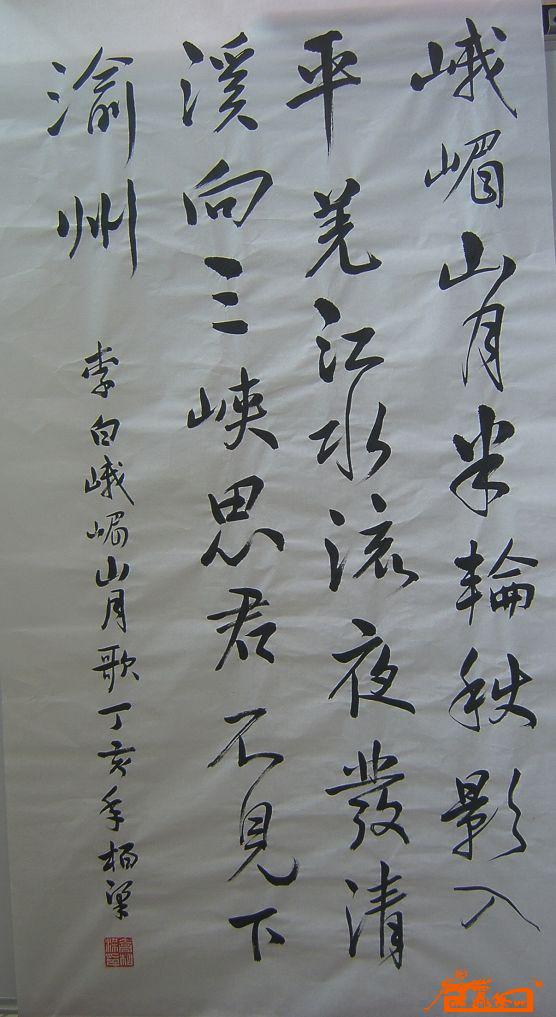 峨嵋山月半輪秋影入
平羌江水流夜發清
溪向三峽思君不見下
渝州
李白峨嵋山月歌丁亥年柏梁